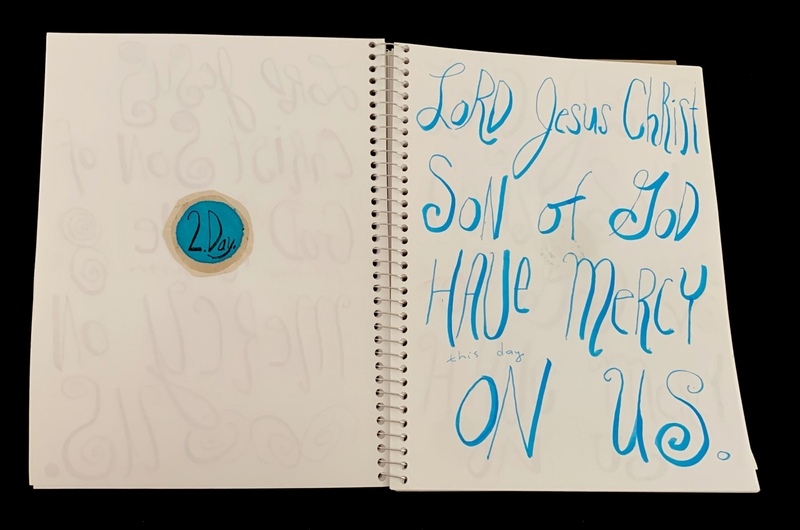 2.Day.
LORD Jesus Christ
SON of GOD
HAVe MeRCY
this day
ON US.